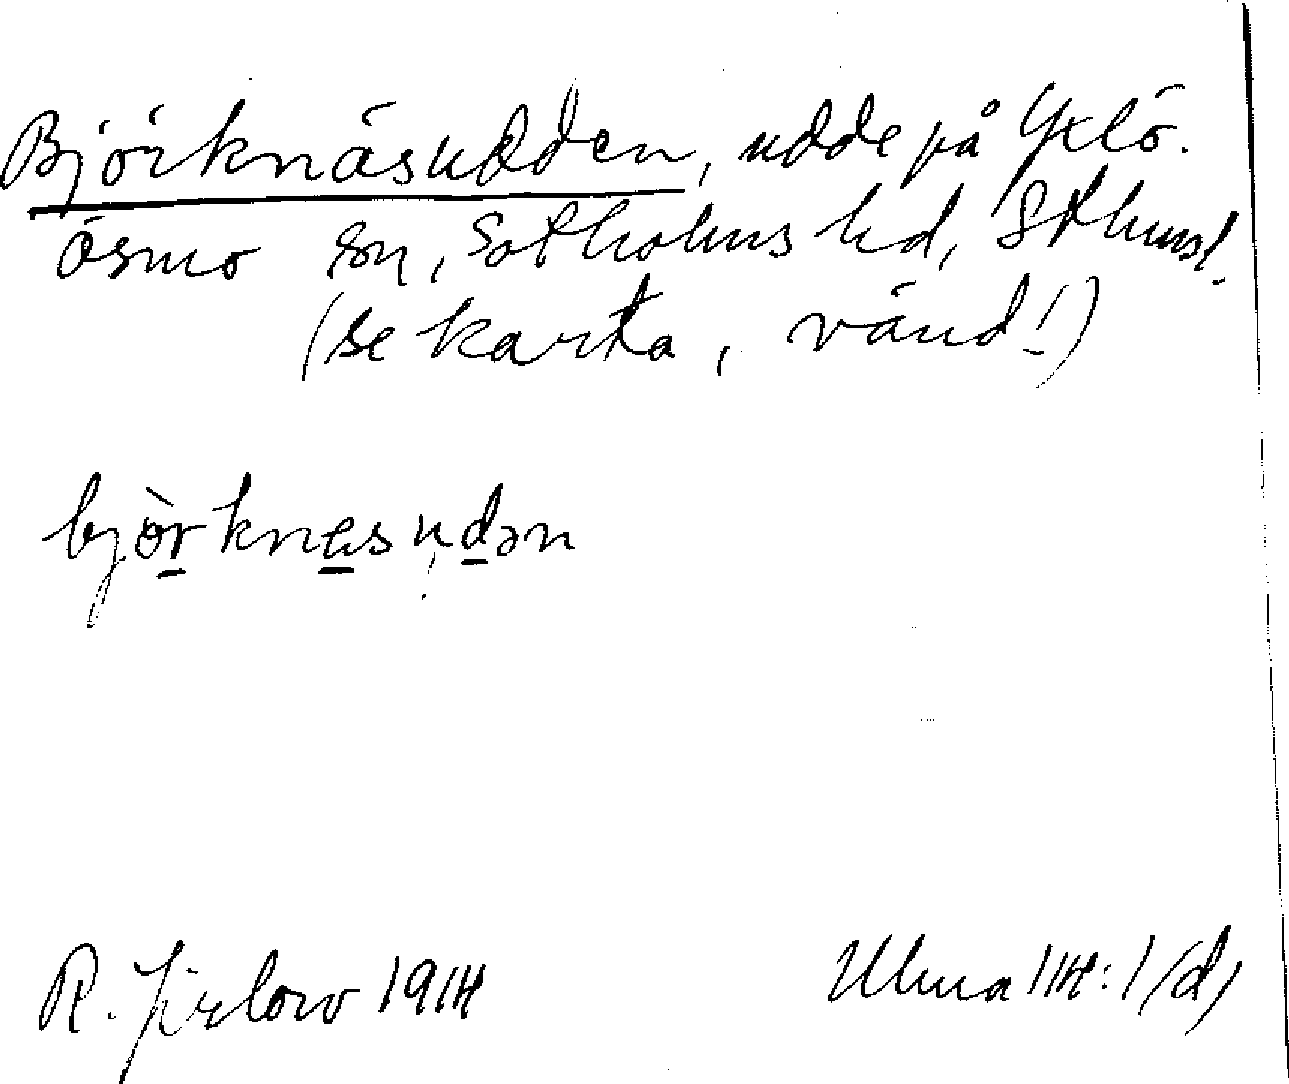 Björknäsudden, udde på Yxlö.
Ösmo sn, Sotholms hd, Sthmsl.
(se karta, vänd!)
bjòrknesudən
R. Jirlow 1914
Ulma 114:1(d)